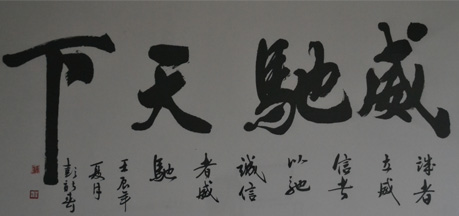 威馳天下
诚者
立威
信者
以馳
誠信
者威
馳
壬辰年
夏月